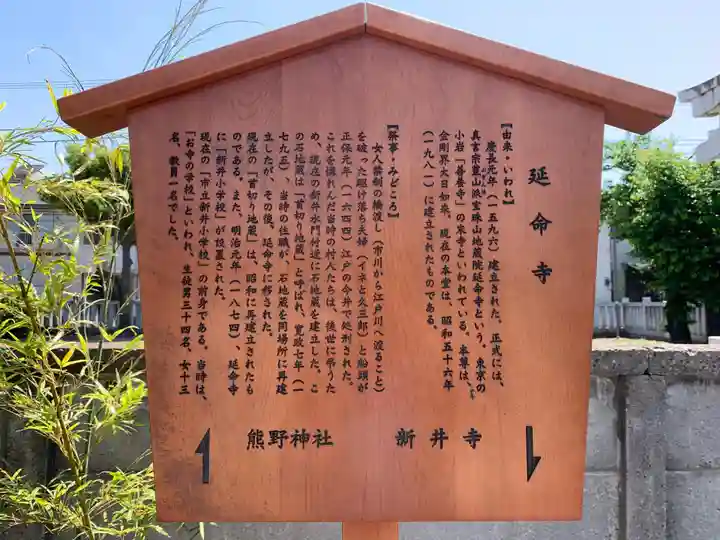 延命寺
【由来・いわれ】
慶長元年（一五九六）建立された。正式には、
真言宗豊山派宝珠山地蔵院延命寺という。東京の
小岩「善養寺」の末寺といわれている。本尊は、
金剛界大日如来。現在の本堂は、昭和五十六年
（一九八一）に建立されたものである。
【行事・みどころ】
女人禁制の椿渡し（市川から江戸川へ渡ること）
を破った駆け落ち夫婦（イネと久三郎）と船頭が
正保元年（一六四四）江戸の今井で処刑された。
これを憐れんだ当時の村人たちは、後世に弔うた
め、現在の新井水門付近に石地蔵を建立した。こ
の石地蔵は「首切り地蔵」と呼ばれ、寛政七年（一
七九五）、当時の住職が、石地蔵を同場所に再建
立したが、その後、延命寺に移された。
現在の「首切り地蔵」は、昭和に再建立されたも
のである。また、明治元年（一八七四）延命寺
に「新井小学校」が設置された。
現在の「市立新井小学校」の前身である。当時は、
「お寺の学校」といわれ、生徒男三十四名、女十三
名、教員一名でした。
新井寺
熊野神社